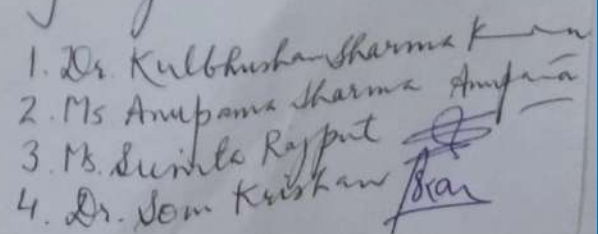 1. Dr. Kulbhushan Sharma
2. Ms Anupama Sharma Anupama
3. Ms. Sunita Rajput
4. Dr. Som Krishan